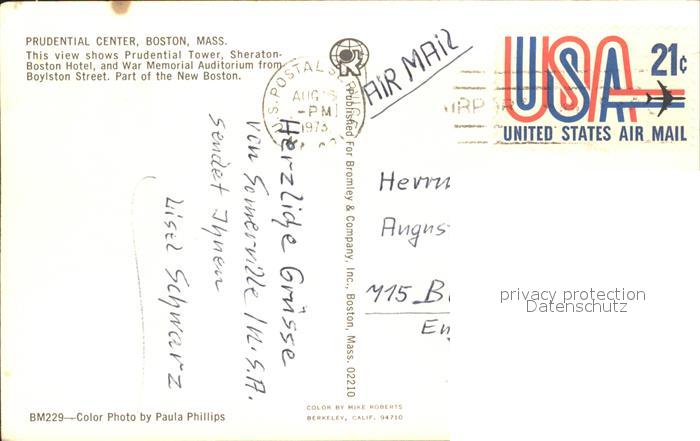 PRUDENTIAL CENTER, BOSTON, MASS.
This view shows Prudential Tower, Sheraton-
Boston Hotel, and War Memorial Auditorium from
Boylston Street. Part of the New Boston.
U.S. POSTAL
AUG
-PM
1973
AIR MAIL
USA 21¢
UNITED STATES AIR MAIL
Herzliche Grüsse
von Somerville / U.S.A.
sendet Ihnen
Lisel Schwarz
Published For Bromley & Company, Inc., Boston, Mass. 02210
Herrn
Augus
715 B
En
privacy protection
Datenschutz
BM229—Color Photo by Paula Phillips
COLOR BY MIKE ROBERTS
BERKELEY, CALIF. 94710